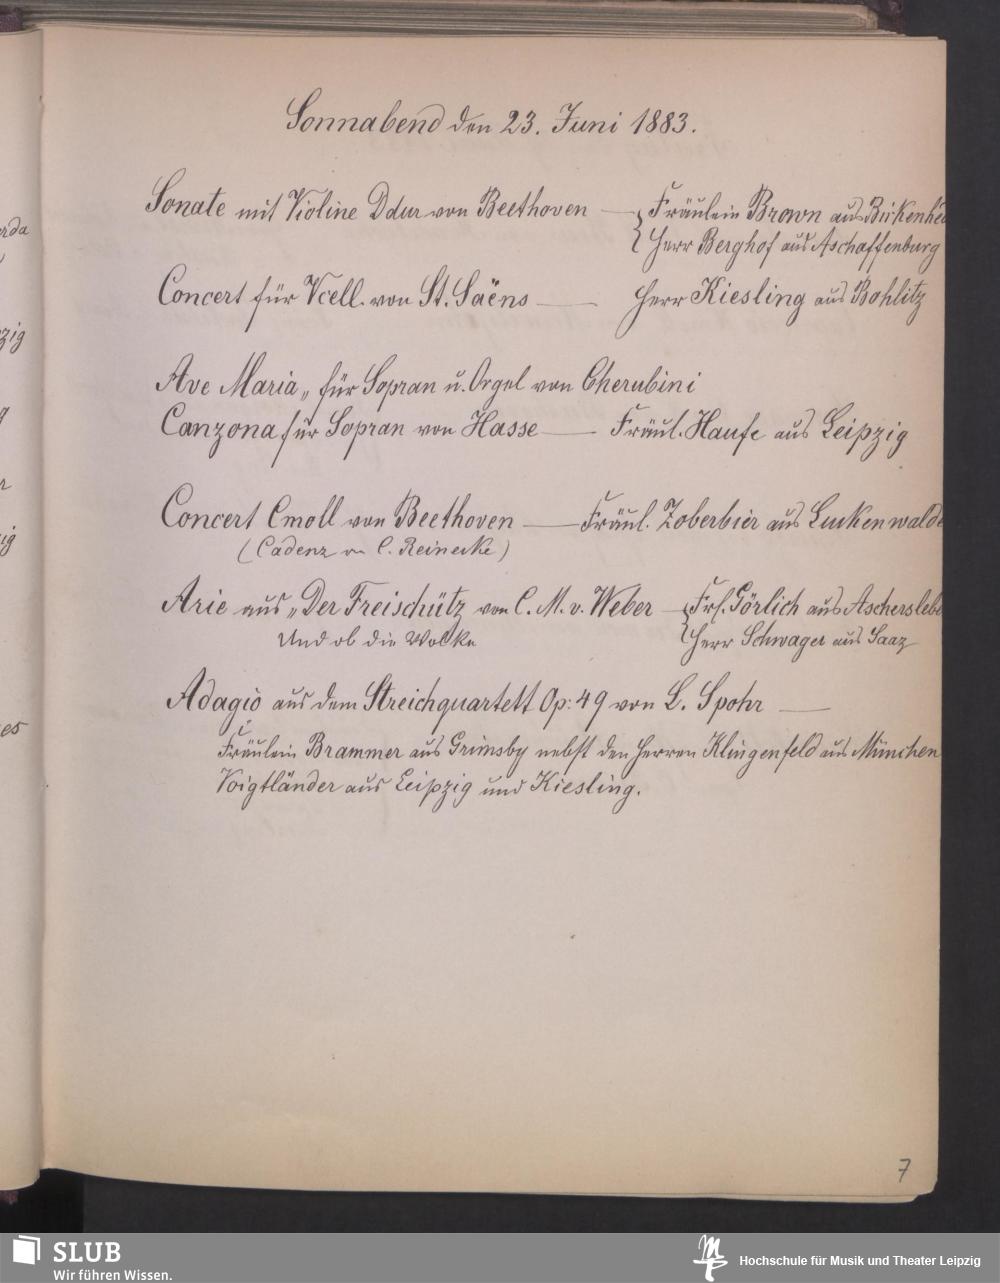 Sonnabend den 23. Juni 1883.
Sonate mit Violine Ddur von Beethoven — Fräulein Brown aus Birkenhe
Herr Berghof aus Aschaffenburg
Concert für Vcell. von St. Saëns — Herr Kiesling aus Bohlitz
Ave Maria„ für Sopran u. Orgel von Cherubini
Canzona für Sopran von Hasse — Fräul. Haufe aus Leipzig
Concert Cmoll von Beethoven — Fräul. Zoberbier aus Luckenwalde
(Cadenz von C. Reinecke)
Arie aus „Der Freischütz von C. M. v. Weber — Frl. Görlich aus Aschersleb
Und ob die Wolke
Herr Schwager aus Saaz
Adagio aus dem Streichquartett Op: 49 von L. Spohr —
Fräulein Brammer aus Grimsby nebst den Herren Klingenfeld aus München
Voigtländer aus Leipzig und Kiesling.
7
SLUB
Wir führen Wissen.
Hochschule für Musik und Theater Leipzig